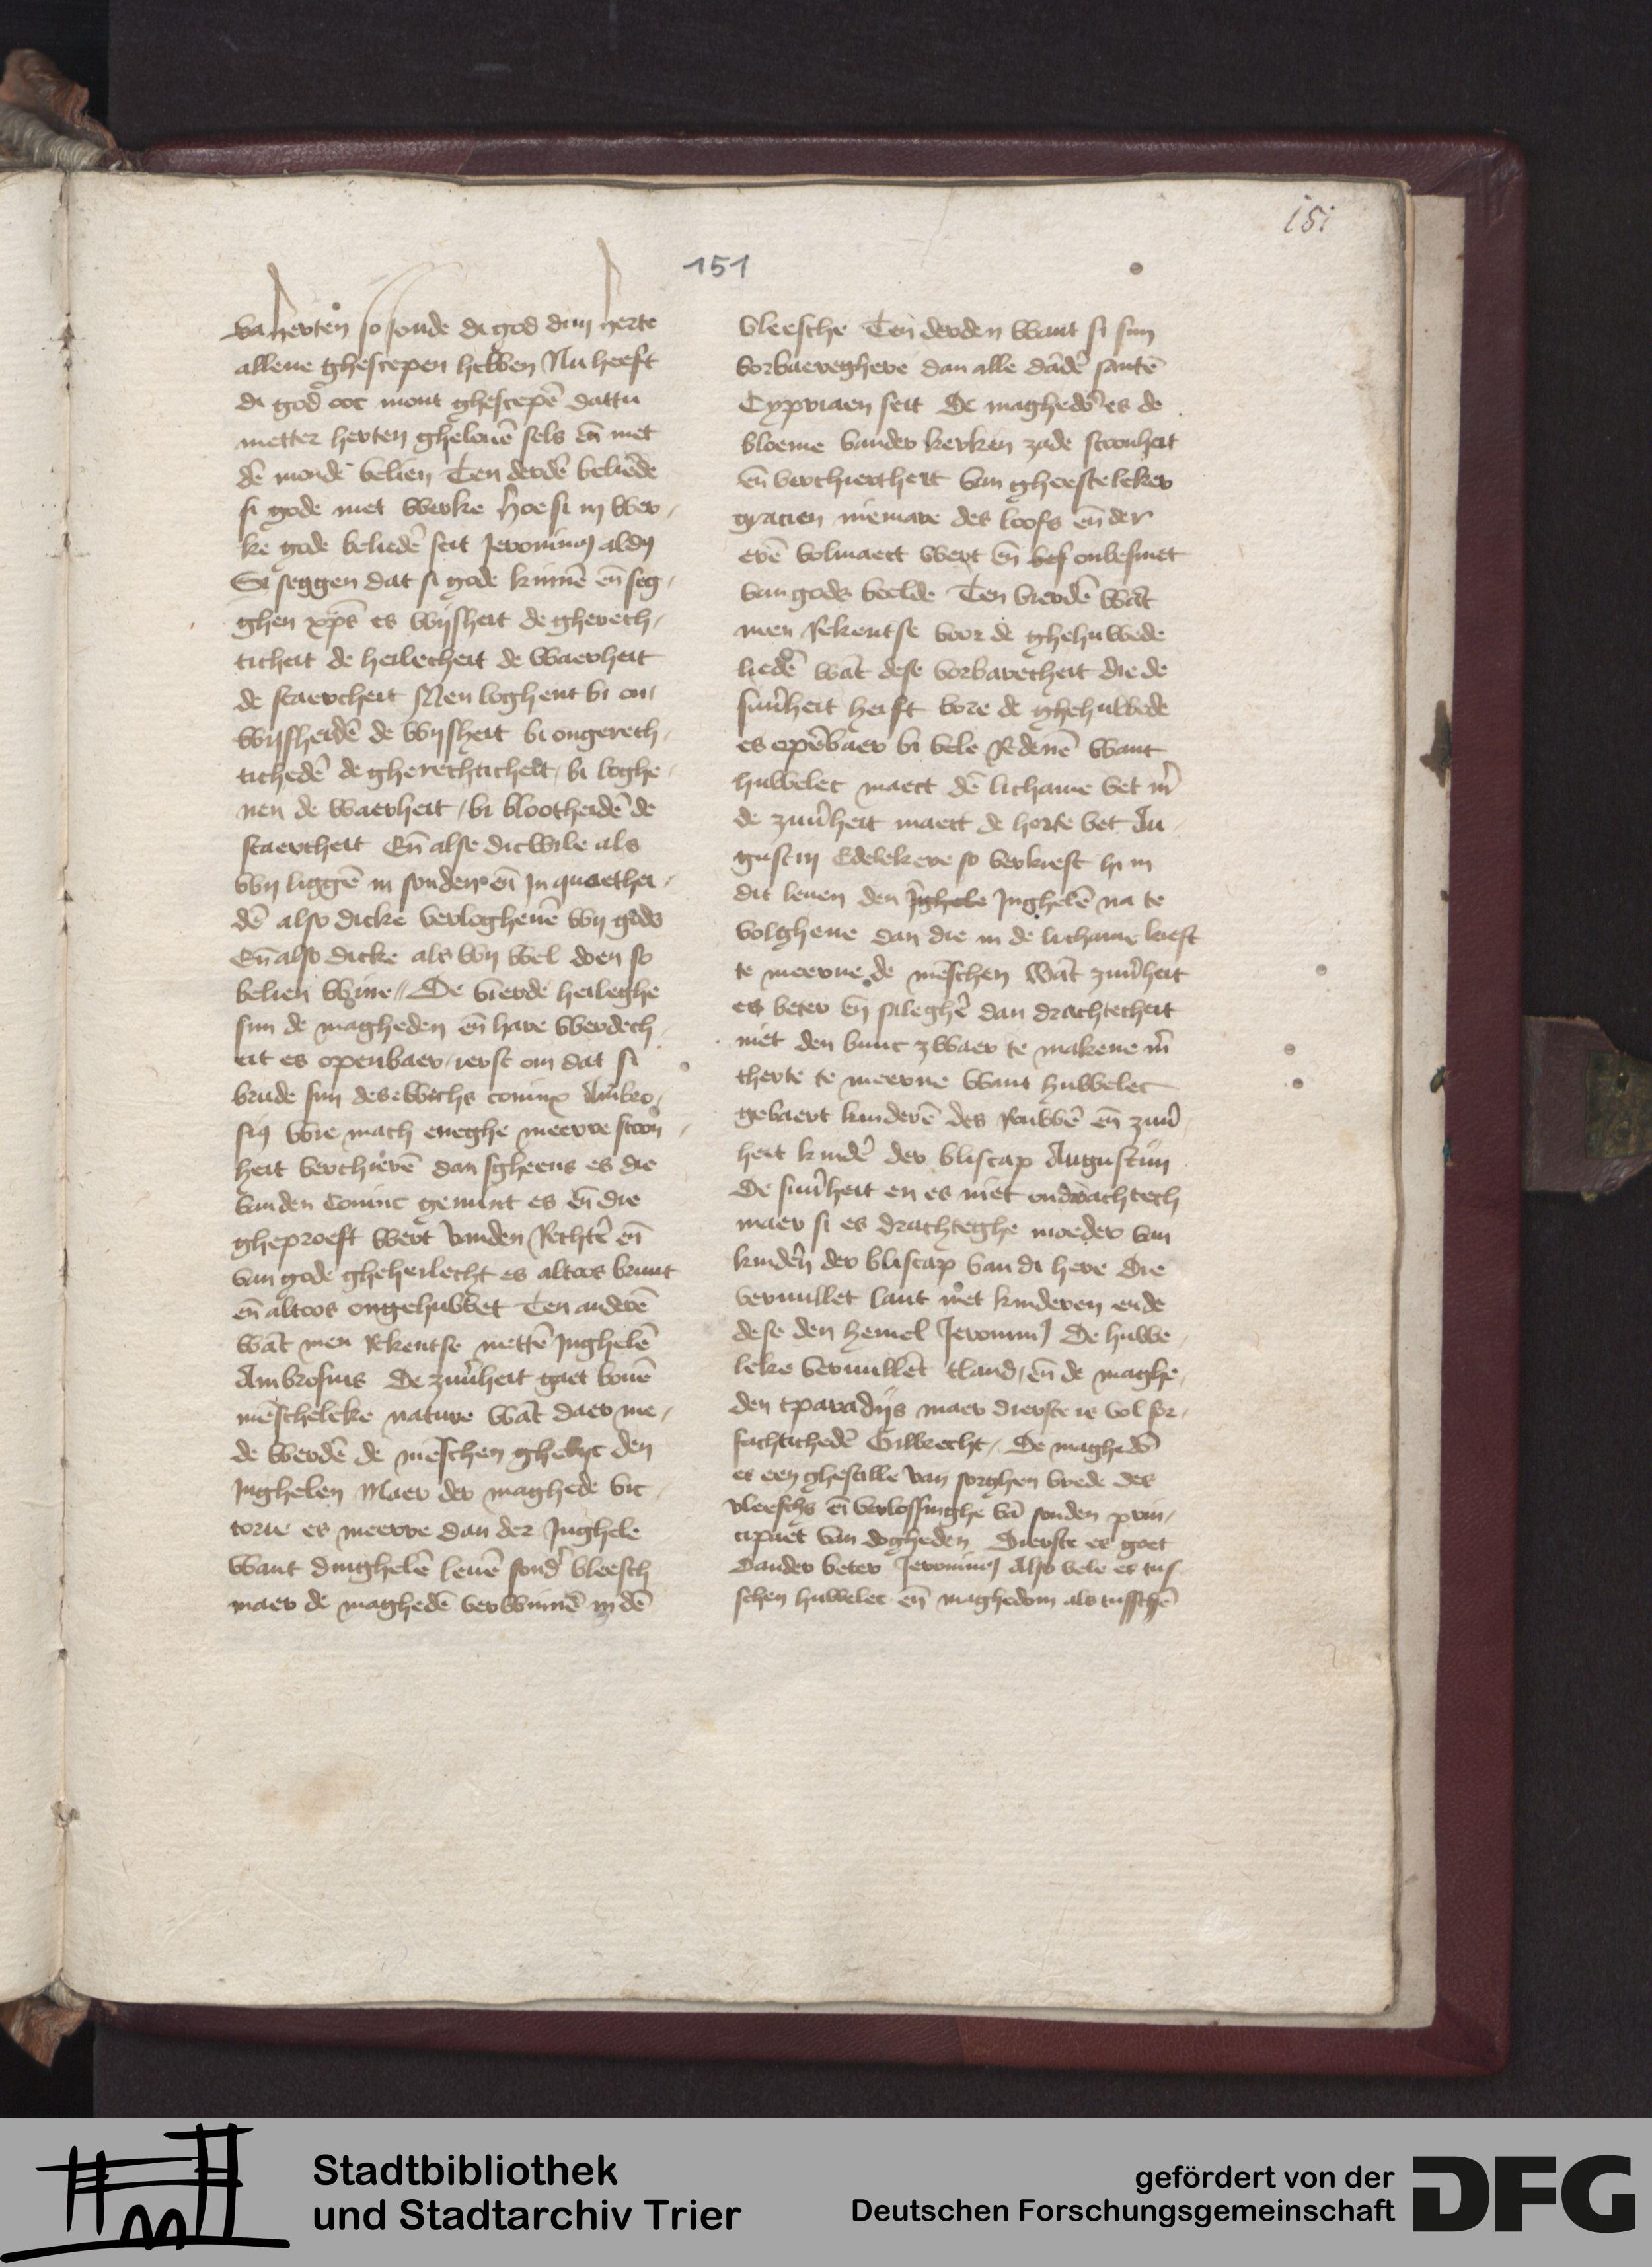 151
151
va herten so soude di god dijn herte
allene ghescepen hebben Nu heeft
di god ooc mont ghescepē dattu
metter herten ghelouē sels eñ met
dē monde belien Ten derdē beliedē
si gode met werke hoe si in wer-
ke gode beliedē seit Jeronimus aldus
Si seggen dat si gode kinnē eñ seg-
ghen xps es wijsheit de gherech-
ticheit de heilecheit de waerheit
de staercheit Men loghent bi on-
wijsheidē de wijsheit bi ongerech-
tichedē de gherechticheit, bi loghe-
nen de waerheit, bi blootheidē de
staercheit Eñ alse dicwile als
wij liggē in sonden eñ in quaethei-
dē also dicke verloghenē wij gods
Eñ also dicke als wij wel doen so
belien wine // De vierde heileghe
sijn de magheden eñ hare werdech
eit es openbaer, ierst om dat si
brude sijn des ewechs coninx Ambro-
sius Wie mach eneghe meerre scoon-
heit verchierē dan sgheens es die
vanden coninc gemint es eñ die
gheproeft wert vanden rechtē eñ
van gode gheheilecht es altoos bruut
eñ altoos ongehuwet Ten anderē
wāt men rekentse mettē inghelē
Ambrosius De zuuheit gaet bouē
mēscheleke nature wāt daer me-
de werdē de mēschen ghelijc den
inghelen Maer der maghede vic-
torie es meerre dan der inghele
want dinghelē leuē sond vleesch
maer de maghedē verwinnē in dē
vleesche Ten derden want si sijn
vorbaereghere dan alle dandē santē
Cypriaen seit De maghedō es de
bloeme vander kerken zade scoonheit
eñ verchiertheit van gheesteleker
gracien niemare des loofs eñ der
erē volmaect wert eñ onbesmet
van gods beelde Ten vierdē wāt
men rekentse voor de ghehuwede
liedē wāt dese vorbarecheit die de
suuheit heift vore de ghehuwede
es opēbaer bi vele redenē want
huwelec maect dē lichame vet
de zuuheit maect de herte vet Au-
gustijn Edelekere so verkiest hi in
dit leuen den inghele inghelē na te
volghene dan die in de lichame leeft
te meerne de mēschen wāt zuuheit
es beter eñ saleghē dan drachtecheit
niet den buuc zwaer te makene
therte te meerne want huwelec
gebaert kinderē des rouwē eñ zuu
heit kindē der bliscap Augustijn
De suuheit en es niet ondrachtech
maer si es drachteghe moeder van
kinden der bliscap van di here Die
veruullet lant met kinderen ende
dese den hemel Jeronimus De huwe-
leke veruullēt tland, eñ de maghe-
den tparadijs maer dierste ie vol sor-
fachtichedē Gilbrecht, De maghedō
es een ghestille van sorghen vrede des
vleeschs eñ verlossinghe vā sonden prin-
cipaet van dogheden Dierste es goet
dander beter Jeronimus Also vele es tus
schen huwelec eñ maghedom als tusschē
Stadtbibliothek
und Stadtarchiv Trier
gefördert von der
Deutschen Forschungsgemeinschaft
DFG